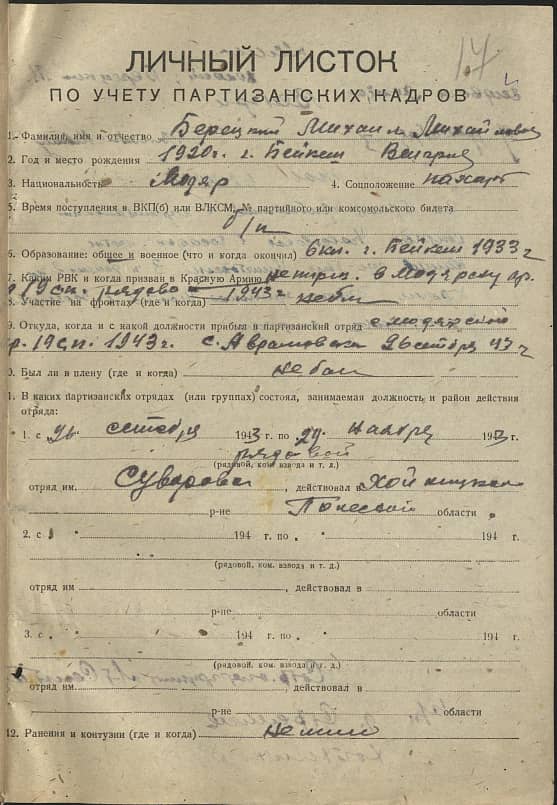 17
ЛИЧНЫЙ ЛИСТОК
ПО УЧЕТУ ПАРТИЗАНСКИХ КАДРОВ
1. Фамилия, имя и отчество Берецкий Михаил Михайлович
2. Год и место рождения 1920 г. г. Бейкеш Венгрия
3. Национальность Модяр 4. Соцположение
5. Время поступления в ВКП(б) или ВЛКСМ, № партийного или комсомольского билета
б/п
6. Образование: общее и военное (что и когда окончил) 6 кл. г. Бейкеш 1933 г
7. Каким РВК и когда призван в Красную Армию в Модярску ар.
19 сп. рядовой 1943 г
8. Участие на фронтах (где и когда) не был
9. Откуда, когда и с какой должности прибыл в партизанский отряд с модярской
19 сп. 1943 г. с. 26 сентября 43 г
0. Был ли в плену (где и когда) не был
1. В каких партизанских отрядах (или группах) состоял, занимаемая должность и район действия
отряда:
1. с 26 сентября 1943 г. по 29 ноября 1943 г.
рядовой
(рядовой, ком. взвода и т. д.)
отряд им. Суворова, действовал в
р-не Полесской области
2. с 194 г. по 194 г.
(рядовой, ком. взвода и т. д.)
отряд им , действовал в
р-не области
3. с 194 г. по 194 г.
(рядовой, ком. взвода и т. д.)
отряд им. , действовал в
р-не области
12. Ранения и контузии (где и когда) не имею